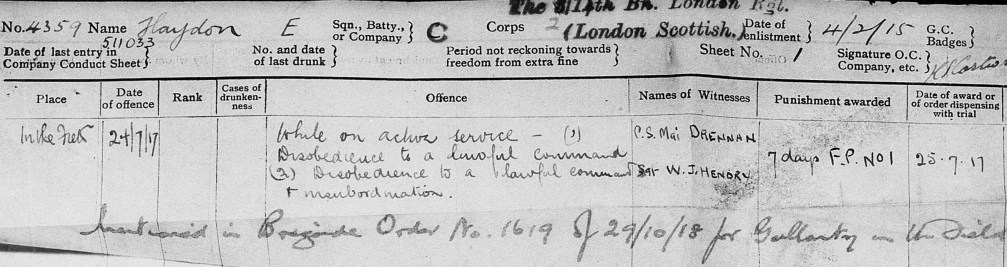 The 2/14th Bn. London Rgt.
No. 4359 Name Haydon E Sqn., Batty., or Company } C Corps 2 (London Scottish, Date of enlistment } 4/2/15 G.C. Badges }
511033
Date of last entry in Company Conduct Sheet } No. and date of last drunk } Period not reckoning towards freedom from extra fine } Sheet No. 1 Signature O.C. Company, etc. }
Place Date of offence Rank Cases of drunkenness Offence Names of Witnesses Punishment awarded Date of award or of order dispensing with trial
In the Field 24/7/17 While on active service – (1) C.S. Maj DRENNAN
Disobedience to a lawful command 7 days F.P. No 1 25.7.17
(2) Disobedience to a lawful command Sgt W.J. HENDRY
+ insubordination.
Mentioned in Brigade Order No. 1619 of 29/10/18 for Gallantry in the Field